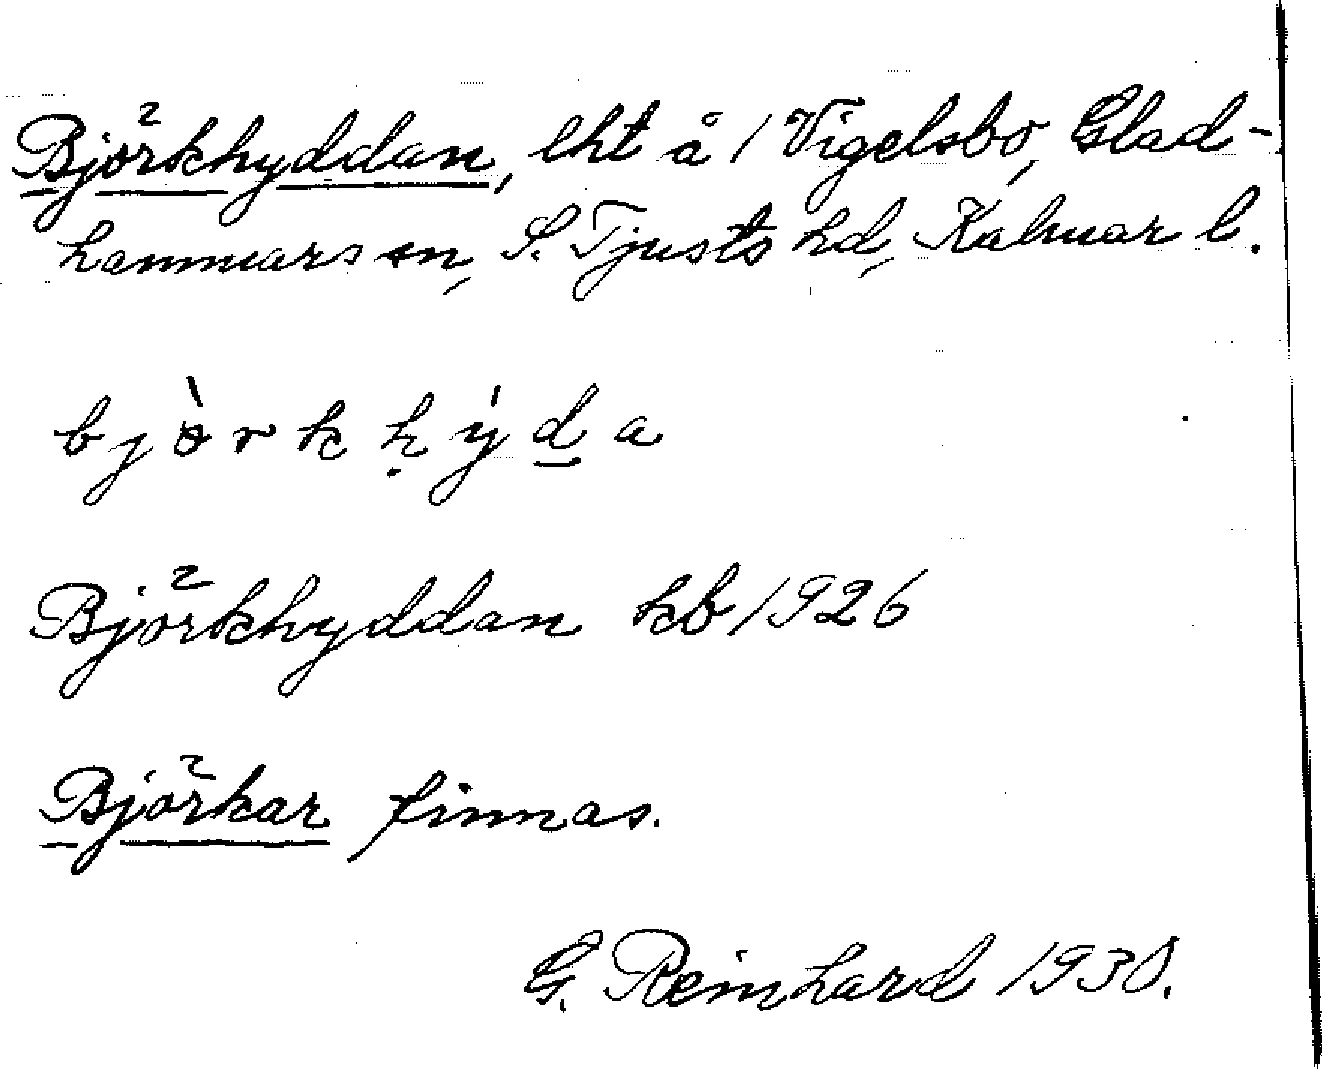 Björkhyddan, lht å 1 Vigelsbo, Glad-
hammars sn, S. Tjusts hd, Kalmar l.
bjòrkḥýḏa
Björkhyddan kb 1926
Björkar finnas.
G. Reinhard 1930.